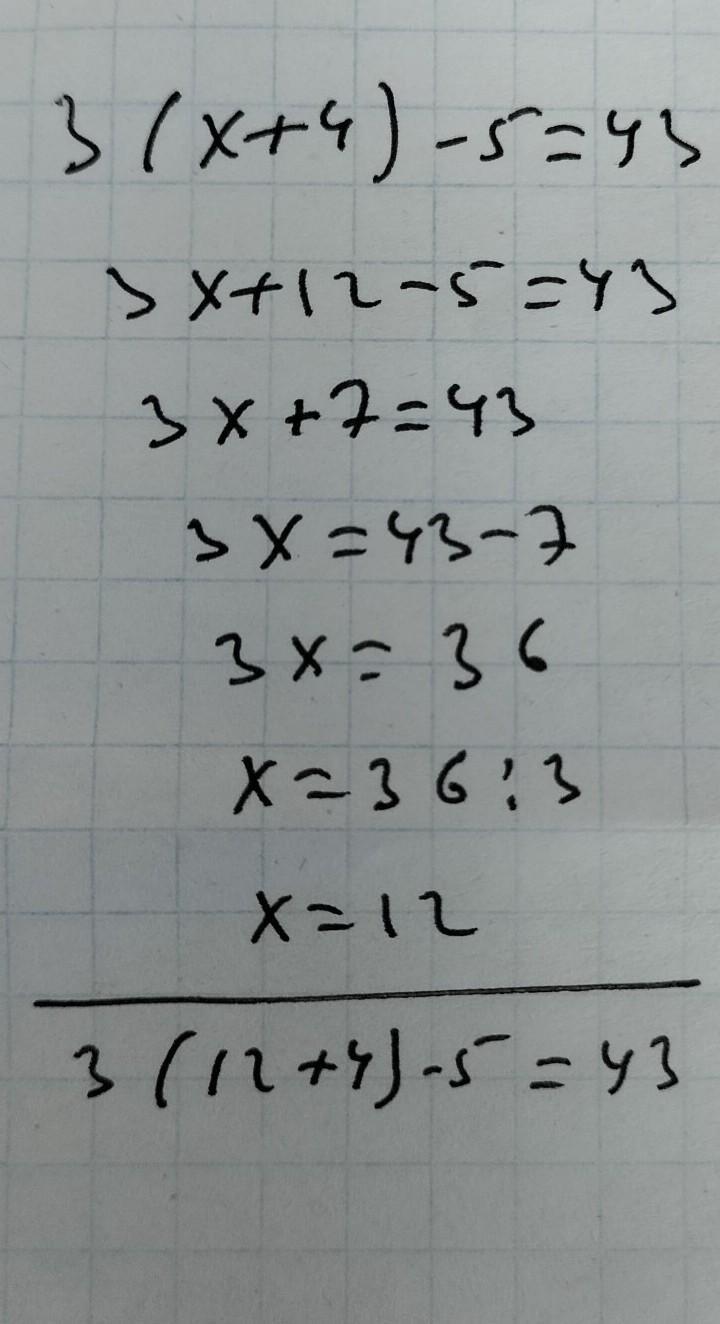 3(x+4)-5=43
3x+12-5=43
3x+7=43
3x=43-7
3x=36
x=36:3
x=12
3(12+4)-5=43